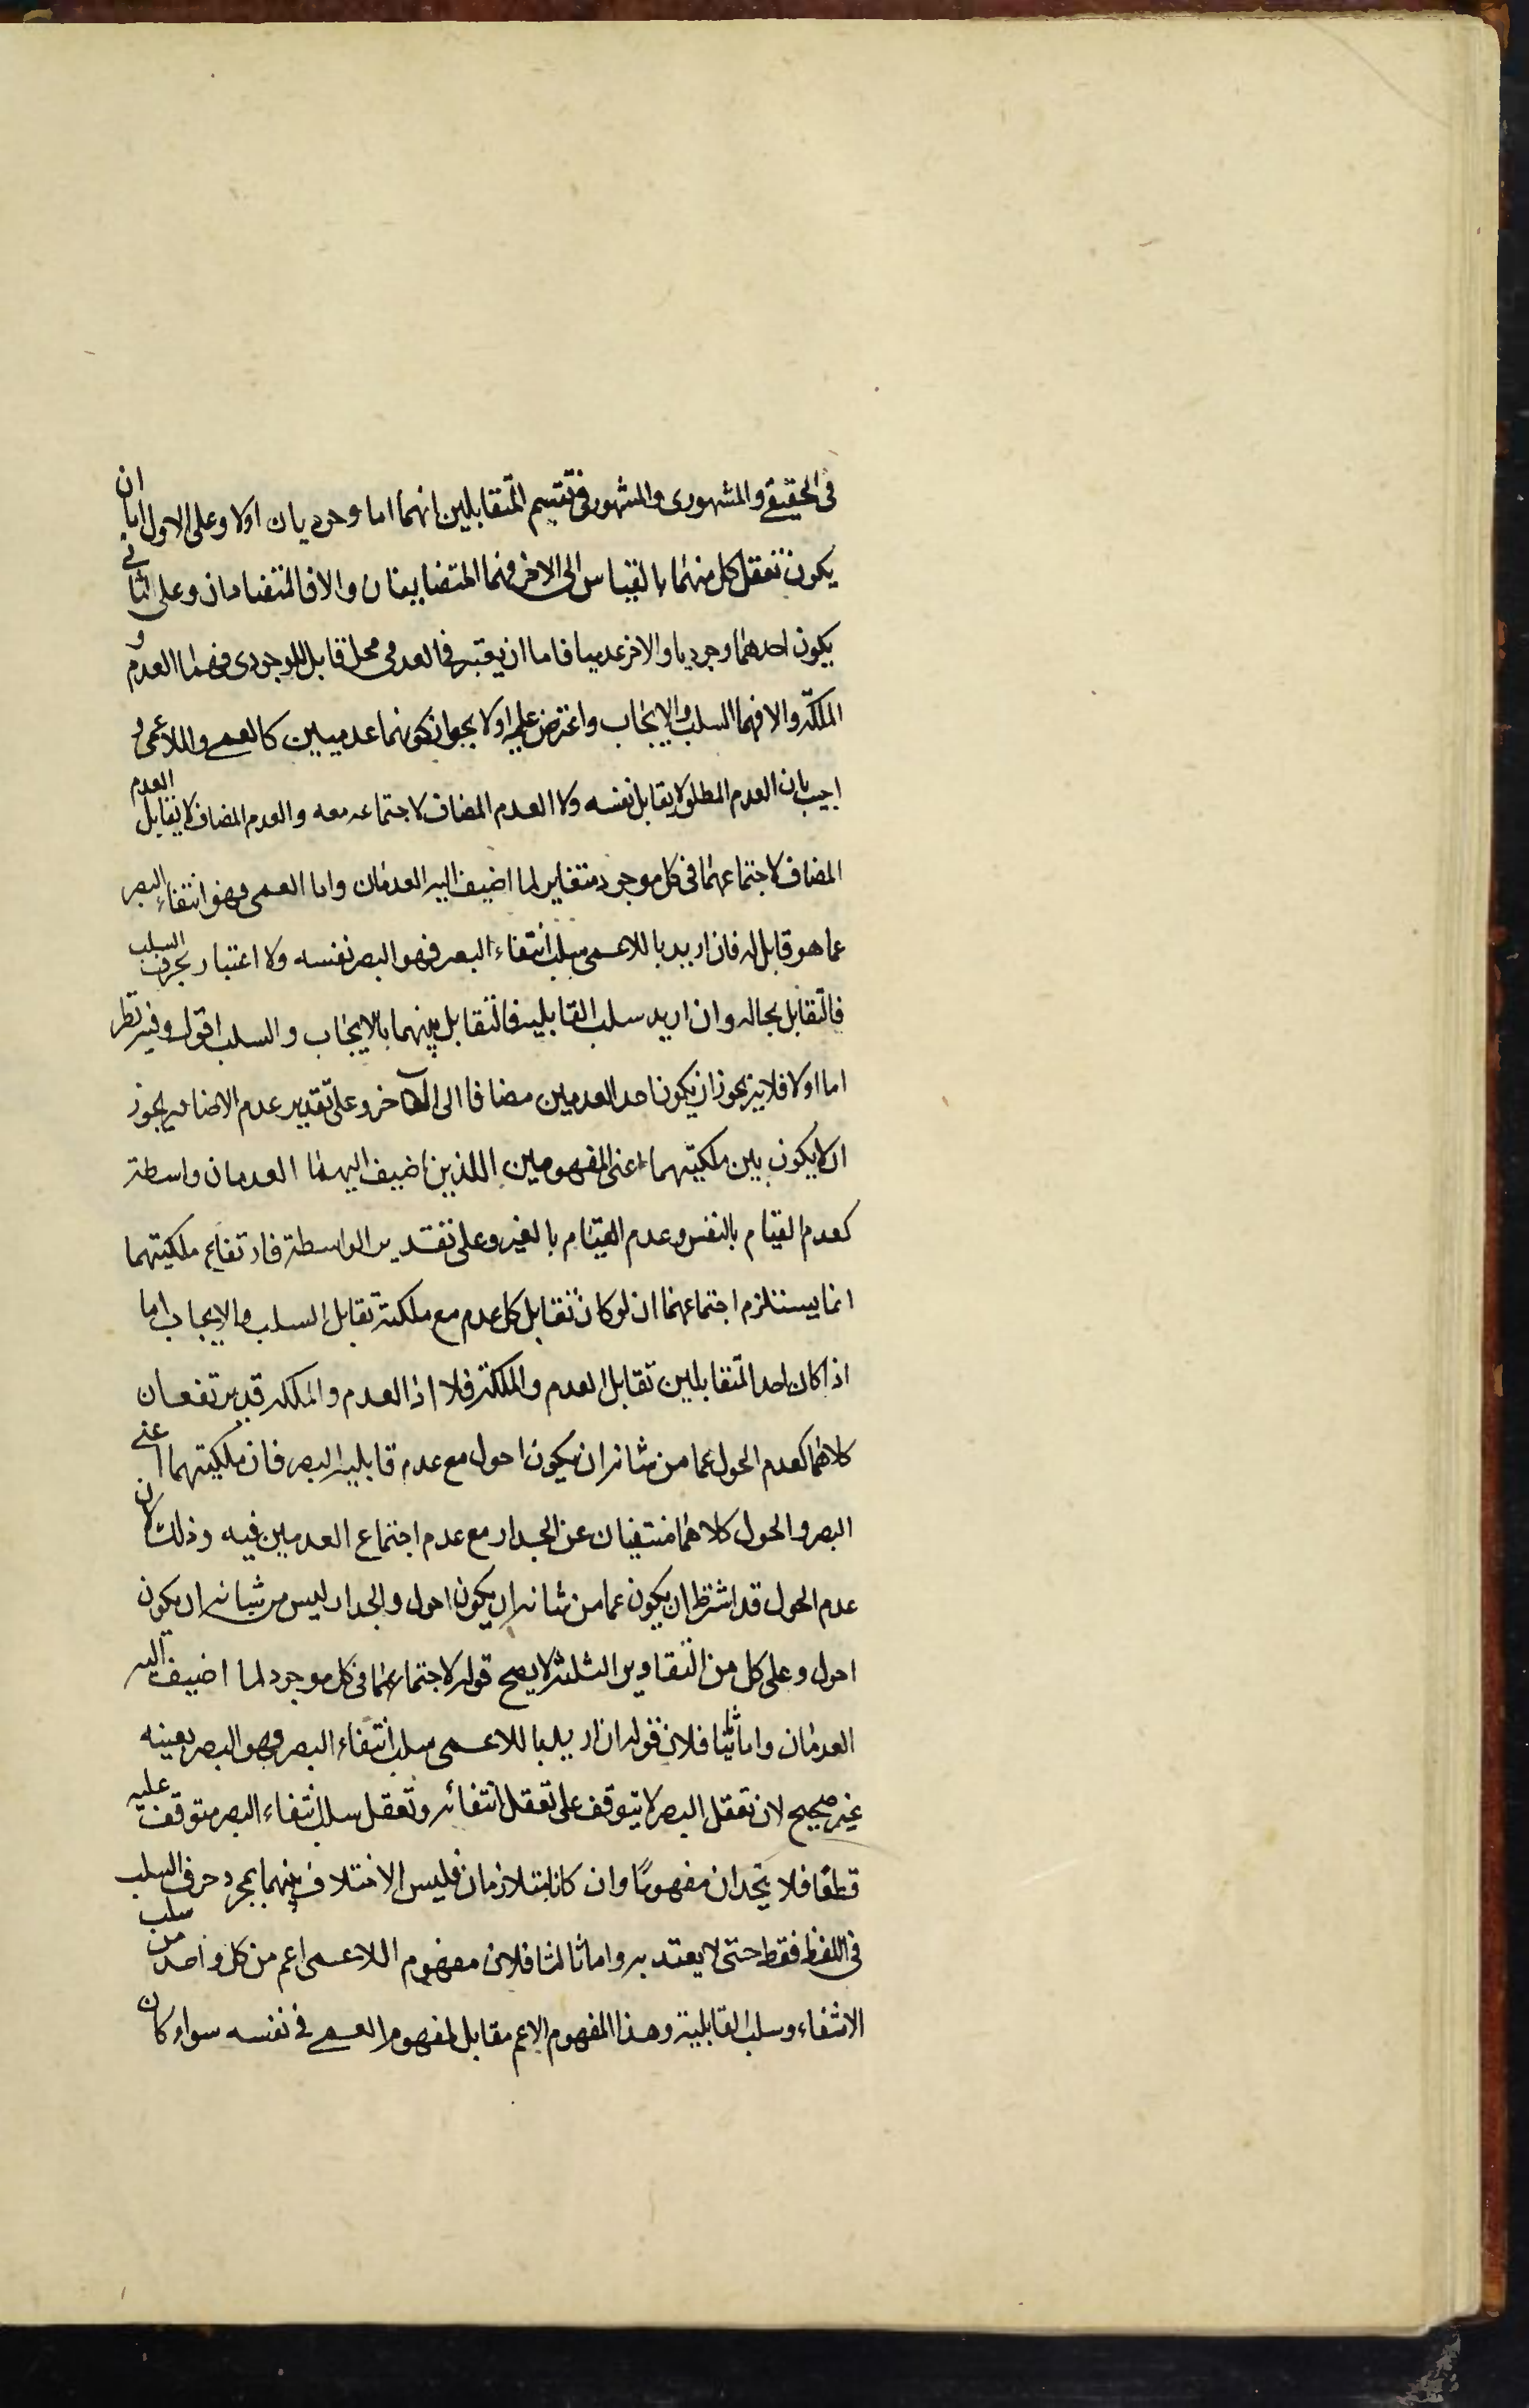 فى الحقيقى والمشهورى والمشهور فى تقسيم المتقابلين انهما اما وجوديان اولا وعلى الاول اما ان
يكون تعقل كل منهما بالقياس الى الاخر فهما المتضايفان والا فالمتضادان وعلى الثانى
يكون احدهما وجوديا والاخر عدميا فاما ان يعتبر فى العدمى محل قابل للوجودى فهما العدم و
الملكة والا فهما السلب والايجاب واعترض عليه اولا بجواز كونهما عدميين كالعمى واللاعمى و
اجيب بان العدم المطلق لا يقابل نفسه ولا العدم المضاف لاجتماعه معه والعدم المضاف لا يقابل العدم
المضاف لاجتماعهما فى كل موجود متغاير لما اضيف اليه العدمان واما العمى فهو انتفاء البصر
عما هو قابل له فان اريد باللاعمى سلب انتفاء البصر فهو البصر نفسه ولا اعتبار بحرف السلب
فالتقابل بحاله وان اريد سلب القابلية فالتقابل بينهما بالايجاب والسلب اقول وفيه نظر
اما اولا فلانه يجوز ان يكون احد العدمين مضافا الى الآخر وعلى تقدير عدم الاضافة يجوز
ان لا يكون بين ملكيتهما اعنى المفهومين اللذين اضيف اليهما العدمان واسطة
كعدم القيام بالنفس وعدم القيام بالغير وعلى تقدير الواسطة فارتفاع ملكيتهما
انما يستلزم اجتماعهما ان لو كان تقابل كل عدم مع ملكته تقابل السلب والايجاب اما
اذا كان احد المتقابلين تقابل العدم والملكة فلا اذ العدم والملكة قد يرتفعان
كلاهما كعدم الحول عما من شانه ان يكون احول مع عدم قابلية البصر فان ملكيتهما اعنى
البصر والحول كلاهما منتفيان عن الجدار مع عدم اجتماع العدمين فيه وذلك لان
عدم الحول قد اشترط ان يكون عما من شانه ان يكون احول والجدار ليس من شانه ان يكون
احول وعلى كل من التقادير الثلثة لا يصح قوله لاجتماعهما فى كل موجود لما اضيف اليه
العدمان واما ثانيا فلان قوله ان اريد باللاعمى سلب انتفاء البصر فهو البصر بعينه
غير صحيح لان تعقل البصر لا يتوقف على تعقل انتفائه وتعقل سلب انتفاء البصر متوقف عليه
قطعا فلا يتحدان مفهوما وان كانا متلازمان فليس الاختلاف بينهما بمجرد حرف السلب
فى اللفظ فقط حتى لا يعتد به واما ثالثا فلان مفهوم اللاعمى اعم من كل واحد من سلب
الانتفاء وسلب القابلية وهذا المفهوم الاعم مقابل لمفهوم العمى فى نفسه سواء كان